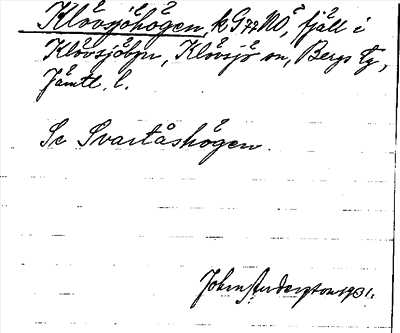 Klövsjöhögen, k G77NO, fjäll i
Klövsjöbyn, Klövsjö sn, Bergs tg,
Jämtl. l.
Se Svartåshögen.
John Anderzton 1931.